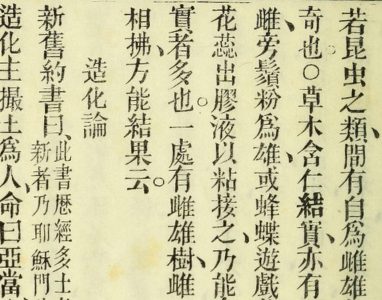 若昆虫之類、間有自為雌雄
奇也○草木含仁結實、亦有
雌、旁鬚粉為雄、或蜂蝶遊戲
花蕊出膠液以粘接之、乃能
實者多也。一處有雌雄樹、雌
相拂方能結果云。
造化論
新舊約書曰、此書歷經多士
新者乃耶穌門
造化主撮土為人、命曰亞當